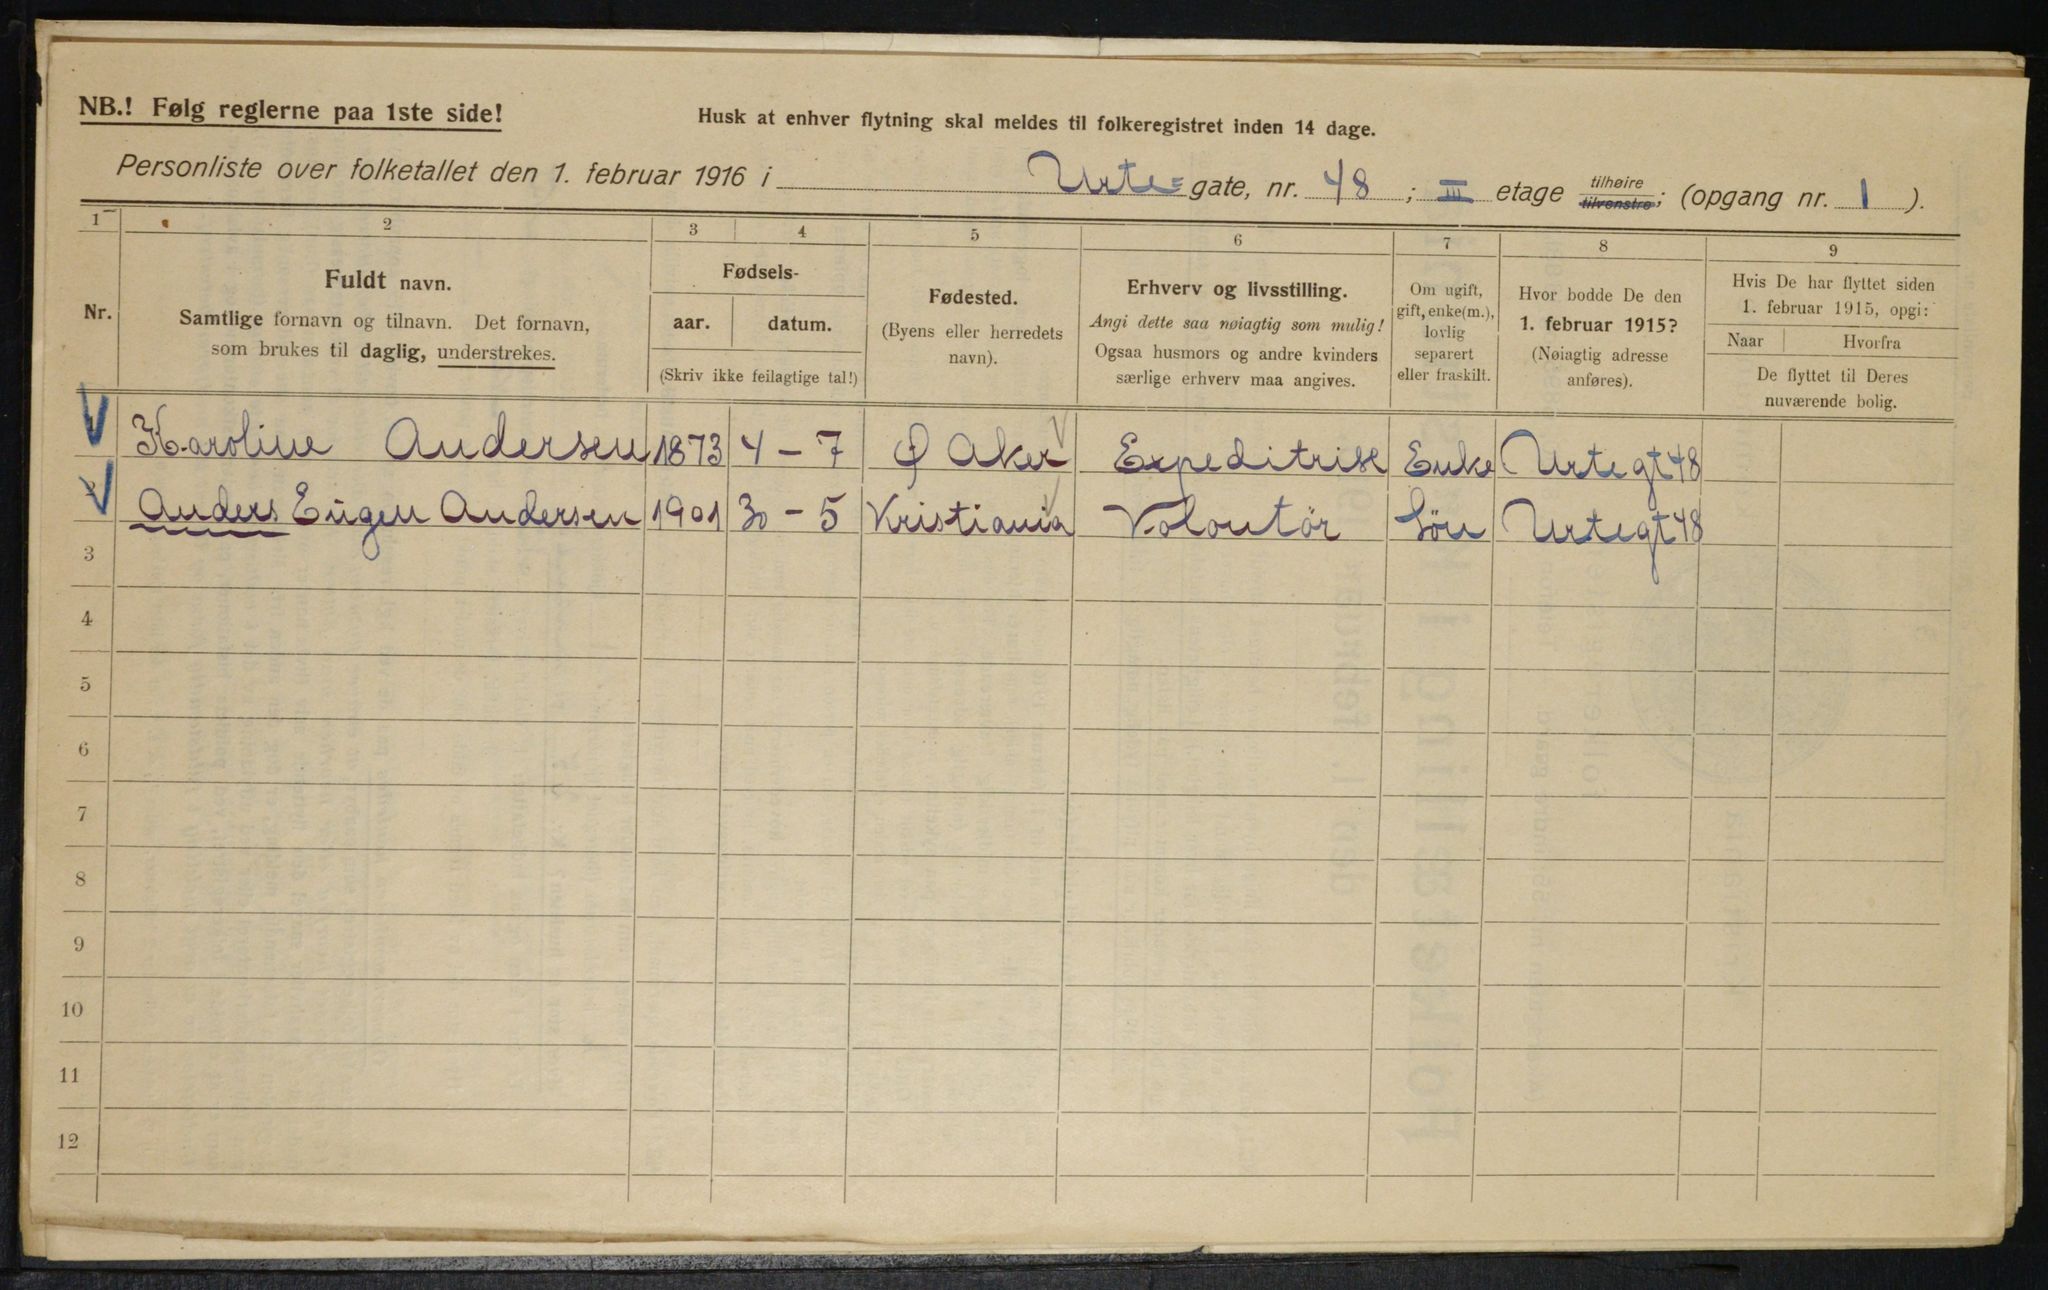 NB.! Følg reglerne paa 1ste side!
Husk at enhver flytning skal meldes til folkeregistret inden 14 dage.
Personliste over folketallet den 1. februar 1916 i Urte=gate, nr. 48; III etage tilhøire tilvenstre; (opgang nr. 1).
1 2 3 4 5 6 7 8 9
Nr.
Fuldt navn.
Samtlige fornavn og tilnavn. Det fornavn,
som brukes til daglig, understrekes.
Fødsels-
aar. datum.
(Skriv ikke feilagtige tal!)
Fødested.
(Byens eller herredets
navn).
Erhverv og livsstilling.
Angi dette saa nøiagtig som mulig!
Ogsaa husmors og andre kvinders
særlige erhverv maa angives.
Om ugift,
gift, enke(m.),
lovlig
separert
eller fraskilt.
Hvor bodde De den
1. februar 1915?
(Nøiagtig adresse
anføres).
Hvis De har flyttet siden
1. februar 1915, opgi:
Naar Hvorfra
De flyttet til Deres
nuværende bolig.
Karoline Andersen 1873 4-7 Ø Aker Expeditrise Enke Urtegt 48
2 Anders Eugen Andersen 1901 30-5 Kristiania Volontör Sön Urtegt 48
3
4
5
6
7
8
9
10
11
12